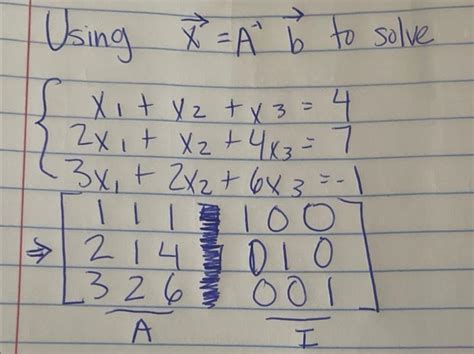 Using x⃗ = A⁻¹ b⃗ to solve
x₁ + x₂ + x₃ = 4
2x₁ + x₂ + 4x₃ = 7
3x₁ + 2x₂ + 6x₃ = -1
1 1 1 1 0 0
⇒ 2 1 4 0 1 0
3 2 6 0 0 1
A I